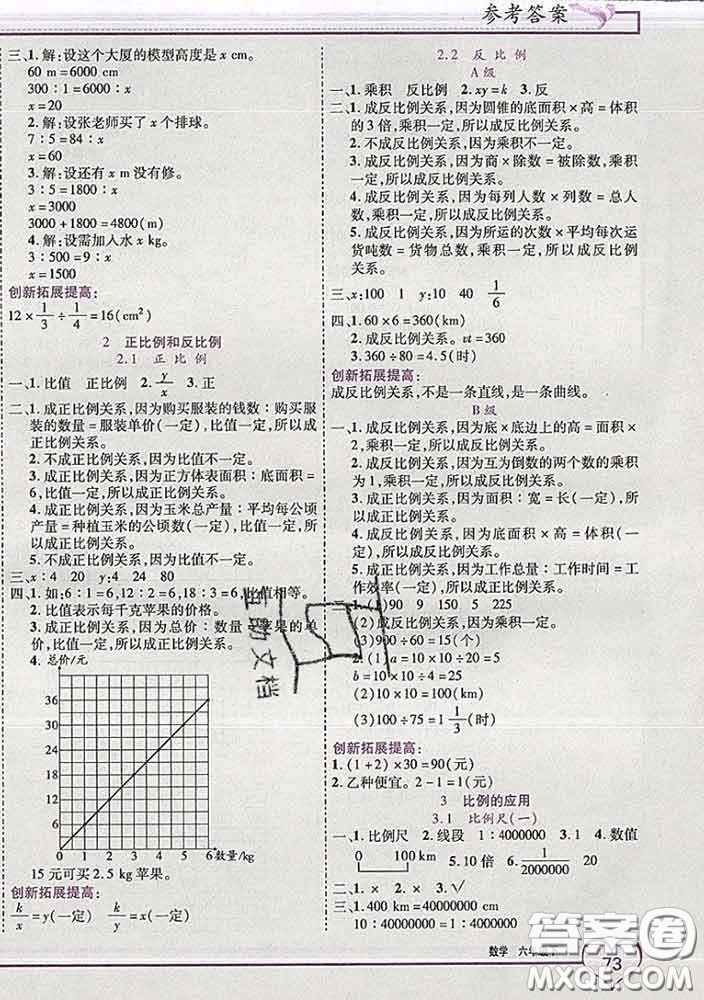 参考答案
三、1. 解:设这个大厦的模型高度是 x cm。
60 m=6000 cm
300∶1=6000∶x
x=20
2. 解:设张老师买了 x 个排球。
7∶5=84∶x
x=60
3. 解:设还有 x m 没有修。
3∶5=1800∶x
x=3000
3000+1800=4800(m)
4. 解:设需加入水 x kg。
3∶500=9∶x
x=1500
创新拓展提高:
12×1/3÷1/4=16(cm²)
2 正比例和反比例
2.1 正比例
一、1. 比值 正比例 2. y/x 3. 正
二、1. 成正比例关系,因为购买服装的钱数∶购买服
装的数量=服装单价(一定),比值一定,所以成
正比例关系。
2. 不成正比例关系,因为比值不一定。
3. 成正比例关系,因为正方体表面积∶底面积=
6,比值一定,所以成正比例关系。
4. 成正比例关系,因为玉米总产量∶平均每公顷
产量=种植玉米的公顷数(一定),比值一定,所
以成正比例关系。
5. 不成正比例关系,因为比值不一定。
三、x:4 20 y:4 24 80
四、1. 如:6∶1=6,12∶2=6,18∶3=6,比值相等。
2. 比值表示每千克苹果的价格。
3. 成正比例关系,因为总价∶数量=苹果的单
价(一定),比值一定,所以成正比例关系。
4. 总价/元
36
30
24
18
12
6
0 1 2 3 4 5 6 数量/kg
15 元可买 2.5 kg 苹果。
创新拓展提高:
k/x=y(一定) k/y=x(一定)
2.2 反比例
A 级
一、1. 乘积 反比例 2. xy=k 3. 反
二、1. 成反比例关系,因为圆锥的底面积×高=体积
的 3 倍,乘积一定,所以成反比例关系。
2. 不成反比例关系,因为乘积不一定。
3. 成反比例关系,因为商×除数=被除数,乘积
一定,所以成反比例关系。
4. 成反比例关系,因为每列人数×列数=总人
数,乘积一定,所以成反比例关系。
5. 成反比例关系,因为所运的次数×平均每次运
货吨数=货物总数,乘积一定,所以成反比例
关系。
三、x:100 1 y:10 40 1/6
四、1. 60×6=360(km)
2. 成反比例关系。vt=360
3. 360÷80=4.5(时)
创新拓展提高:
成反比例关系,不是一条直线,是一条曲线。
B 级
一、1. 成反比例关系,因为底×底边上的高=面积×
2,乘积一定,所以成反比例关系。
2. 成反比例关系,因为互为倒数的两个数的乘积
为 1,乘积一定,所以成反比例关系。
3. 成正比例关系,因为面积∶宽=长(一定),所
以成正比例关系。
4. 成反比例关系,因为底面积×高=体积(一
定),所以成反比例关系。
5. 成正比例关系,因为工作总量∶工作时间=工
作效率(一定),所以成正比例关系。
二、1. (1)90 9 150 5 225
(2)成反比例关系。
(3)900÷60=15(个)
2. (1)a=10×10÷20=5
b=10×10÷4=25
(2)10×10=100(km)
(3)100÷75=1 1/3(时)
创新拓展提高:
1. (1+2)×30=90(元)
2. 乙种便宜。2-1=1(元)
3 比例的应用
3.1 比例尺(一)
一、1. 比例尺 2. 线段 1∶4000000 3. 1 4. 数值
0 100 km 5. 10 倍 6. 1/2000000 20
二、1. × 2. × 3. √
三、400 km=40000000 cm
10∶40000000=1∶4000000
数学 六年级下
73
互助文档
答案圈
MXQE.COM